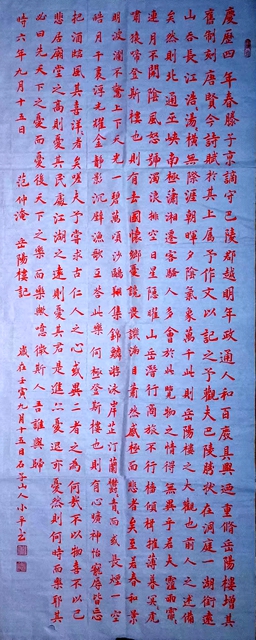 慶歷四年春滕子京謫守巴陵郡越明年政通人和百廢具興迺重修岳陽樓增其
舊制刻唐賢今詩賦於其上屬予作文以記之予觀夫巴陵勝狀在洞庭一湖銜遠
山吞長江浩浩湯湯橫無際涯朝暉夕陰氣象萬千此則岳陽樓之大觀也前人之述備
矣然則北通巫峽南極瀟湘遷客騷人多會於此覽物之情得無異乎若夫霪雨霏霏
連月不開陰風怒號濁浪排空日星隱曜山岳潛行商旅不行檣傾楫摧薄暮冥冥虎
嘯猿啼登斯樓也則有去國懷鄉憂讒畏譏滿目蕭然感極而悲者矣至若春和景
明波瀾不驚上下天光一碧萬頃沙鷗翔集錦鱗游泳岸芷汀蘭鬱鬱青青而或長煙一空
皓月千里浮光耀金靜影沉璧漁歌互答此樂何極登斯樓也則有心曠神怡寵辱皆忘
把酒臨風其喜洋洋者矣嗟夫予嘗求古仁人之心或異二者之為何哉不以物喜不以己
悲居廟堂之高則憂其民處江湖之遠則憂其君是進亦憂退亦憂然則何時而樂耶其
必曰先天下之憂而憂後天下之樂而樂歟噫微斯人吾誰與歸
時六年九月十五日 范仲淹 岳陽樓記 歲在壬寅九月十五日石子山人小平書